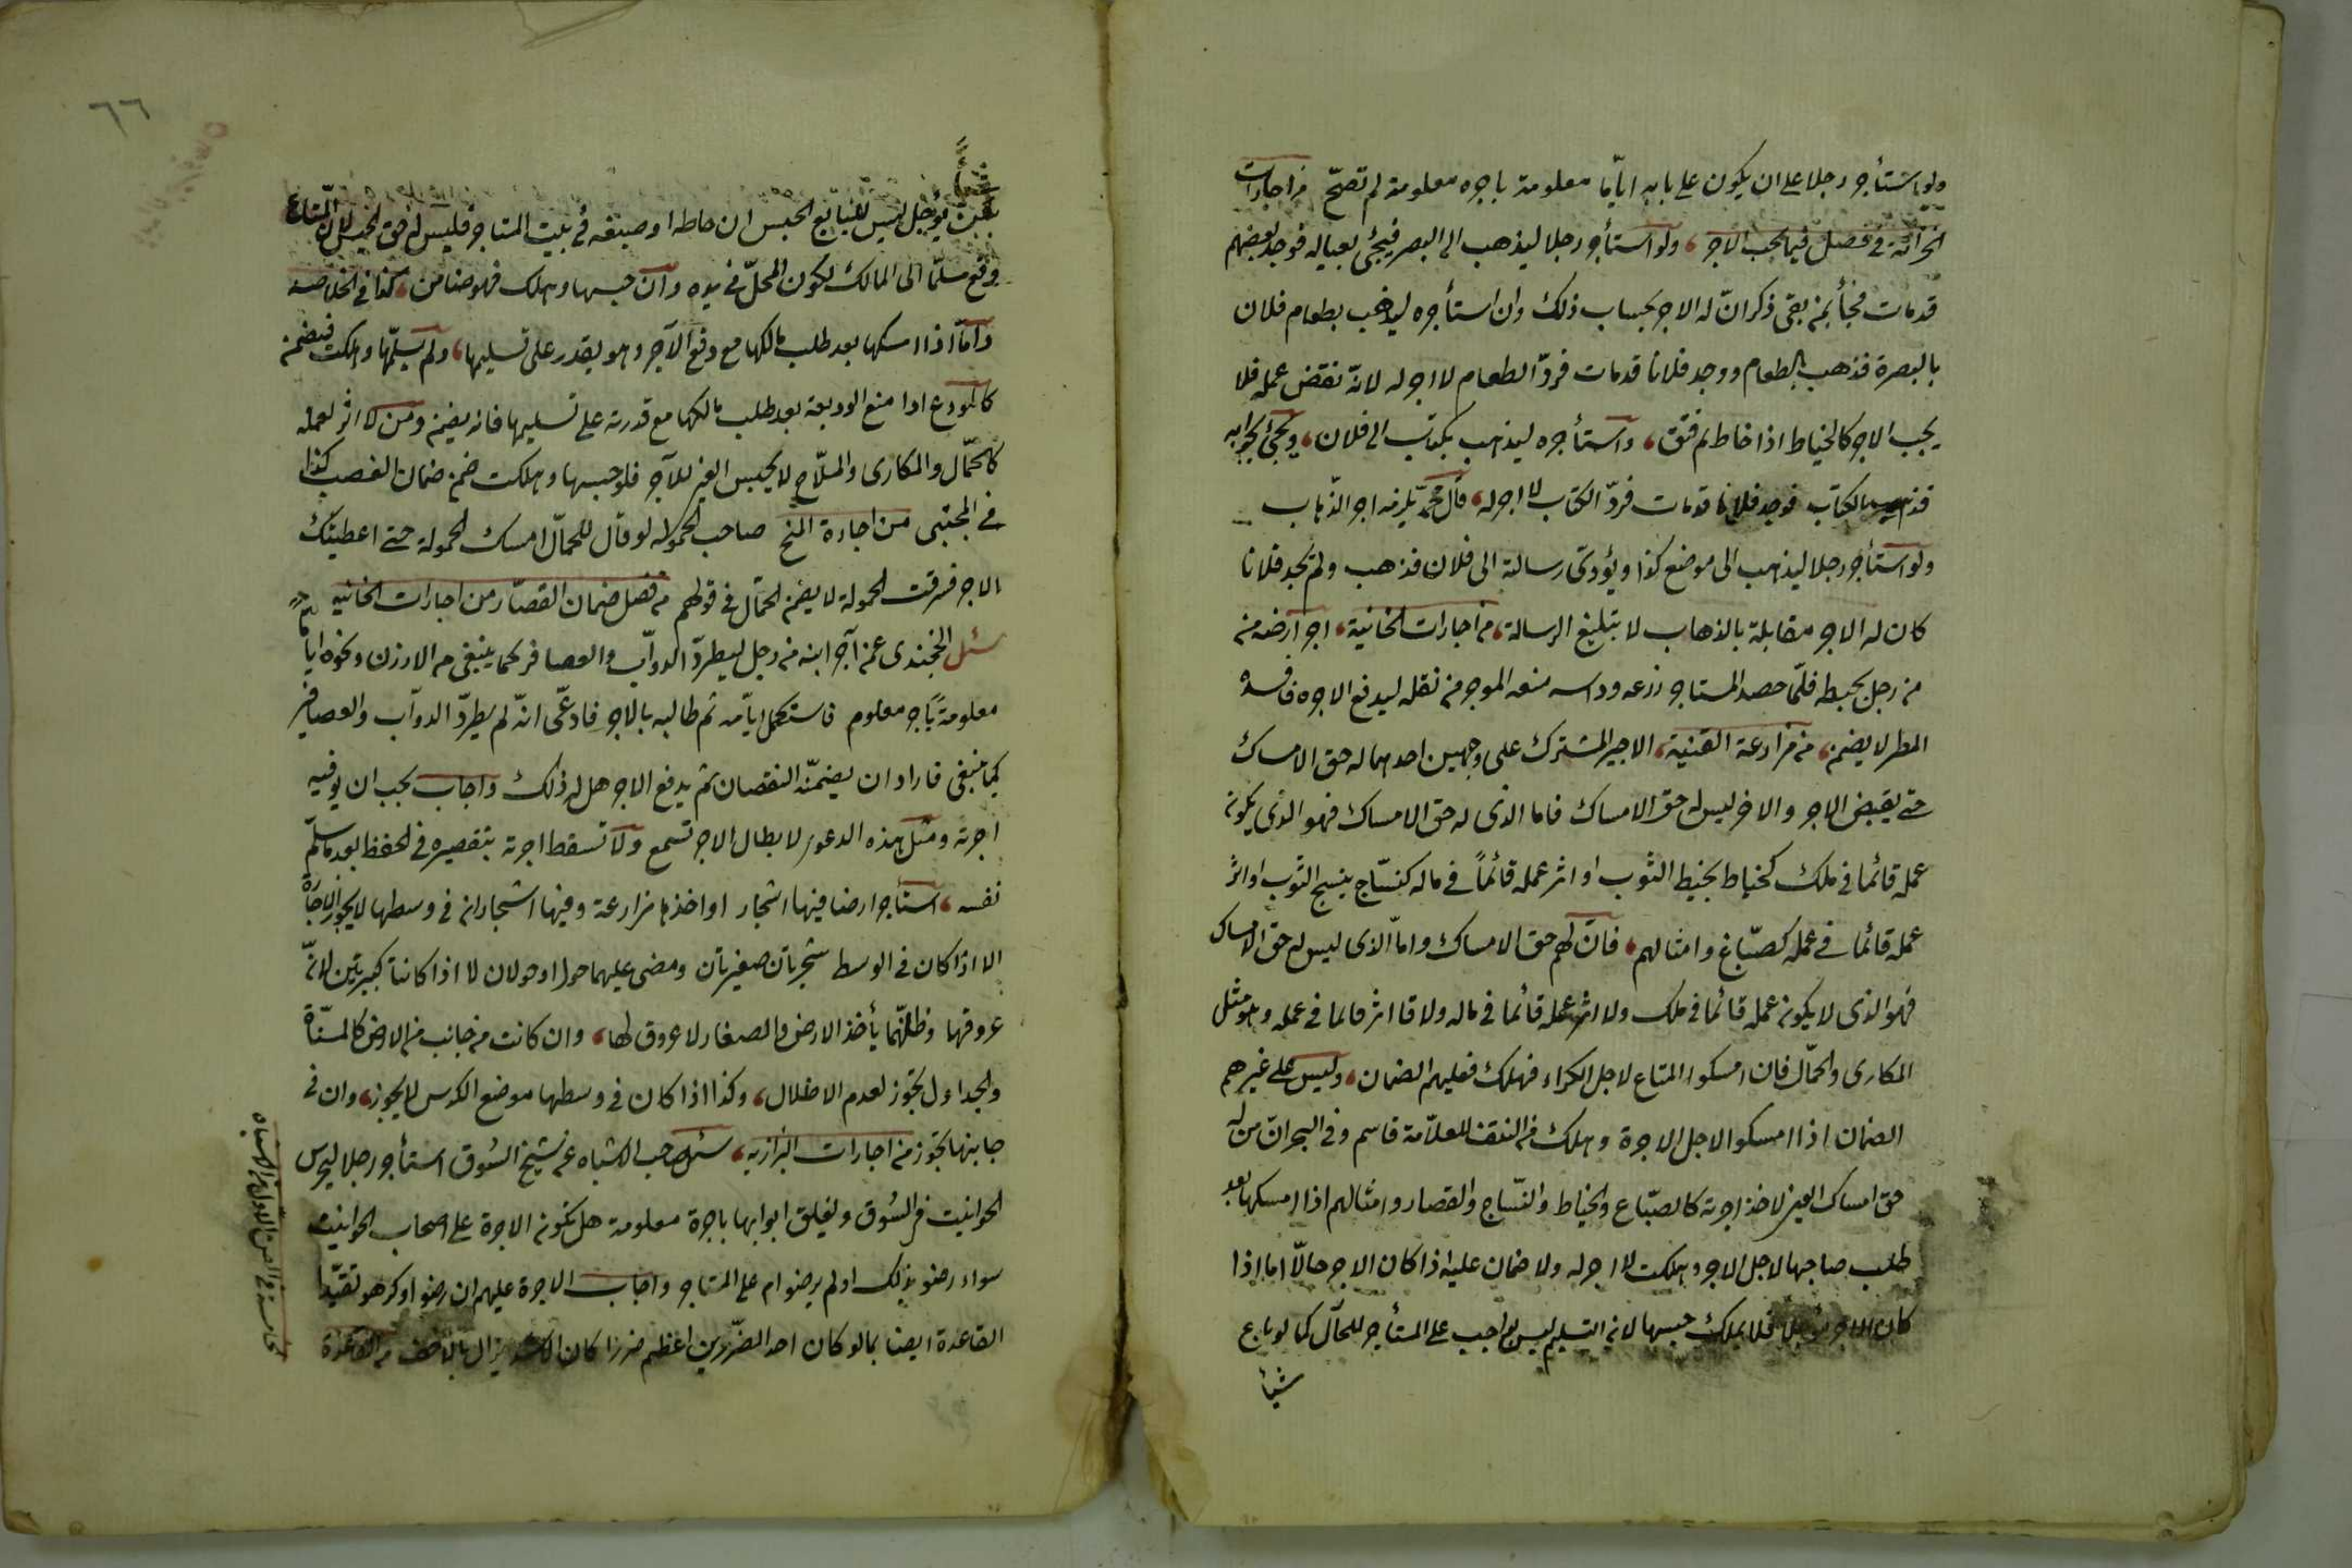 ولو استأجر رجلا على ان يكون على بابه اياما معلومة باجره معلومة لم تصحّ من اجارات
الخزانة في فصل فيما يجب الاجر، ولو استأجر رجلا ليذهب الى البصر فيجئ بعياله فوجد بعضهم
قد مات فجأ بمن بقى ذكر انّ له الاجر بحساب ذلك وان استأجره ليذهب بطعام فلان
بالبصرة فذهب بالطعام ووجد فلانا قد مات فردّ الطعام لا اجر له لانّه نقض عمله فلا
يجب الاجر كالخياط اذا خاط ثم فتق، واستأجره ليذهب بكتاب الى فلان، ويجئ بجوابه
فذهب بالكتاب فوجد فلانا قد مات فردّ الكتاب لا اجر له، قال محمد يلزمه اجر الذهاب
ولو استأجر رجلا ليذهب الى موضع كذا ويؤدى رسالة الى فلان فذهب ولم يجد فلانا
كان له الاجر مقابلة بالذهاب لا بتبليغ الرسالة، من اجارات الخانية، اجر ارضه منه
من رجل بحنطة فلمّا حصد المستاجر زرعه وداسه منعه الموجر من نقله ليدفع الاجره فافسده
المطر لا يضمن، من مزارعة القنية، الاجير المشترك على وجهين احدهما له حق الامساك
حتى يقبض الاجر والاخر ليس له حق الامساك فاما الذى له حق الامساك فهو الذى يكون
عمله قائما في ملك كخياط يخيط الثوب او اثر عمله قائماً في ماله كنسّاج ينسج الثوب او اثر
عمله قائما في عمله كصبّاغ وامثالهم، فانّ لهم حق الامساك وامّا الذى ليس له حق الامساك
فهو الذى لا يكون عمله قائما في ملك ولا اثر عمله قائما في ماله ولا قا اثر قايما في عمله وهو مثل
المكارى والحمّال فان امسكوا المتاع لاجل الكراء فهلك فعليهم الضمان، وليس على غيرهم
الضمان اذا امسكوا لاجل الاجرة وهلك من النتف للعلاّمة قاسم وفي البحر انّ من له
حق امساك العين لاخذ اجرته كالصبّاع والخياط والنسّاج والقصار وامثالهم اذا امسكها بعد
طلب صاحبها لاجل الاجر وهلكت لا اجر له ولا ضمان عليه اذا كان الاجر حالّا اما اذا
كان الاجر مؤجلا فلا يملك حبسها لانه التسليم ليس بواجب على المستأجر للحال كما لو باع
شيأ
٦٦
بثمن مؤجل ليس للبايع الحبس ان خاطه او صبغه في بيت المستاجر فليس له حق الحبس لان المتاع
وقع مسلّما الى المالك لكون المحلّ في يده وان حبسها وهلك فهو ضامن، كذا في الخلاصه
وامّا اذا امسكها بعد طلب مالكها مع دفع الآجر وهو يقدر على تسليمها، ولم يسلّمها وهلكت فيضمن
كالمودع اذا منع الوديعة بعد طلب مالكها مع قدرته على تسليمها فانه يضمن ومن لا اثر لعمله
كالحمّال والمكارى والملاّح لا يحبس العين للآجر فلو حبسها وهلكت ضمن ضمان الغصب كذا
في المجتبى من اجارة المنح صاحب الحموله لو قال للحمّال امسك الحمولة حتى اعطيتك
الاجر فسرقت الحمولة لا يضمن الحمّال في قولهم من فصل ضمان القصّار من اجارات الخانيه
سئل الخجندى عمن آجر ابنه من رجل ليطردّ الدوآب والعصافر كما ينبغى من الارزن ونحوه اياما
معلومة باجر معلوم فاستكمل ايامه ثم طالبه بالاجر فادعّى انّه لم يطردّ الدوآب والعصافر
كما ينبغى فاراد ان يضمنّه النقصان ثم يدفع الاجر هل له ذلك واجاب يجب ان يوفيه
اجرته ومثل هذه الدعوى لابطال الاجر تسمع ولا تسقط اجرته بتقصيره في الحفظ بعد ما سلّم
نفسه، استأجر ارضا فيها اشجار او اخذها مزارعة وفيها اشجار ان في وسطها لا يجوز الاجارة
الا اذا كان في الوسط شجرتان صغيرتان ومضى عليهما حول او حولان لا اذا كانتا كبيرتين لانّ
عروقها وظلّهما يأخذ الارض والصغار لا عروق لها، وان كانت من جانب من الارض كالمسنّاة
والجداول يجوز لعدم الاخلال، وكذا اذا كان في وسطها موضع الكدس لا يجوز، وان في
جابنها يجوز من اجارات البزازيه، سئل صاحب الاشباه عن شيخ السّوق استأجر رجلا ليحرس
الحوانيت في السّوق ولغلق ابوابها باجرة معلومة هل تكون الاجرة على اصحاب الحوانيت
سواء رضو بذلك او لم يرضوا ام على المستاجر واجاب الاجرة عليهم ان رضوا او كرهو تقيّدا
القاعدة ايضا بما لو كان احد الضّررين اعظم ضررا كان الاشد يزال بالاخف من القاعدة